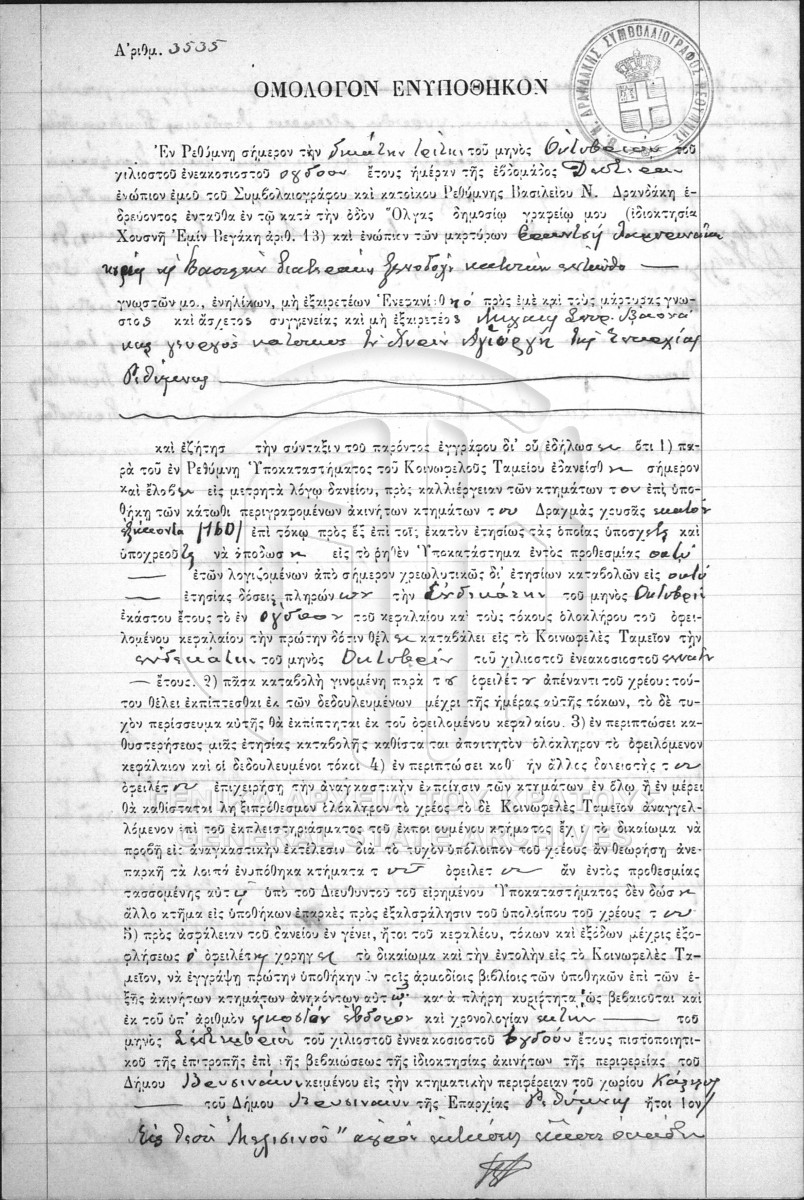 Ἀριθμ. 3535
Β. Ν. ΔΡΑΝΔΑΚΗΣ ΣΥΜΒΟΛΑΙΟΓΡΑΦΟΣ ΡΕΘΥΜΝΗΣ
ΟΜΟΛΟΓΟΝ ΕΝΥΠΟΘΗΚΟΝ
Ἐν Ρεθύμνῃ σήμερον τὴν δεκάτην τρίτην τοῦ μηνὸς Ὀκτωβρίου τοῦ
χιλιοστοῦ ἐνεακοσιοστοῦ ογδόου ἔτους ἡμέραν τῆς ἑβδομάδος Δευτέραν
ἐνώπιον ἐμοῦ τοῦ Συμβολαιογράφου καὶ κατοίκου Ρεθύμνης Βασιλείου Ν. Δρανδάκη ἑ-
δρεύοντος ἐνταῦθα ἐν τῷ κατὰ τὴν ὁδὸν Ὄλγας δημοσίῳ γραφείῳ μου (ἰδιοκτησία
Χουσνῆ Ἐμὶν Βεγάκη ἀριθ. 13) καὶ ἐνώπιον τῶν μαρτύρων
κατοίκων ἐνταῦθα
γνωστῶν μοι, ἐνηλίκων, μὴ ἐξαιρετέων Ἐνεφανίσθη ὁ πρὸς ἐμὲ καὶ τοὺς μάρτυρας γνω-
στος καὶ ἄσχετος συγγενείας καὶ μὴ ἐξαιρετέος
γεωργὸς κάτοικος τῆς Ἐπαρχίας
Ρεθύμνης
καὶ ἐζήτησε τὴν σύνταξιν τοῦ παρόντος ἐγγράφου δι' οὗ ἐδήλωσεν ὅτι 1) πα-
ρὰ τοῦ ἐν Ρεθύμνῃ Ὑποκαταστήματος τοῦ Κοινωφελοῦς Ταμείου ἐδανείσθη σήμερον
καὶ ἔλαβεν εἰς μετρητὰ λόγῳ δανείου, πρὸς καλλιέργειαν τῶν κτημάτων του ἐπὶ ὑπο-
θήκῃ τῶν κάτωθι περιγραφομένων ἀκινήτων κτημάτων του Δραχμὰς χρυσᾶς εκατον
εξηκοντα /160/ ἐπὶ τόκῳ πρὸς ἓξ ἐπὶ τοῖς ἑκατὸν ἐτησίως τὰς ὁποίας ὑπόσχεται καὶ
ὑποχρεοῦται νὰ ἀποδώσῃ εἰς τὸ ῥηθὲν Ὑποκατάστημα ἐντὸς προθεσμίας οκτώ
ἐτῶν λογιζομένων ἀπὸ σήμερον χρεωλυτικῶς δι' ἐτησίων καταβολῶν εἰς οκτώ
ἐτησίας δόσεις πληρώνων τὴν ἑνδεκάτην τοῦ μηνὸς Οκτωβρίου
ἑκάστου ἔτους τὸ ἓν ογδοον τοῦ κεφαλαίου καὶ τοὺς τόκους ὁλοκλήρου τοῦ ὀφει-
λομένου κεφαλαίου τὴν πρώτην δόσιν θέλει καταβάλει εἰς τὸ Κοινωφελὲς Ταμεῖον τὴν
ενδεκάτην τοῦ μηνὸς Οκτωβρίου τοῦ χιλιοστοῦ ἐνεακοσιοστοῦ ενατου
ἔτους. 2) πᾶσα καταβολὴ γινομένη παρὰ του ὀφειλέτου ἀπέναντι τοῦ χρέους τού-
του θέλει ἐκπίπτεσθαι ἐκ τῶν δεδουλευμένων μέχρι τῆς ἡμέρας αὐτῆς τόκων, τὸ δὲ τυ-
χὸν περίσσευμα αὐτῆς θὰ ἐκπίπτηται ἐκ τοῦ ὀφειλομένου κεφαλαίου. 3) ἐν περιπτώσει κα-
θυστερήσεως μιᾶς ἐτησίας καταβολῆς καθίσταται ἀπαιτητὸν ὁλόκληρον τὸ ὀφειλόμενον
κεφάλαιον καὶ οἱ δεδουλευμένοι τόκοι 4) ἐν περιπτώσει καθ' ἣν ἄλλος δανειστὴς του
ὀφειλέτου ἐπιχειρήσῃ τὴν ἀναγκαστικὴν ἐκποίησιν τῶν κτημάτων ἐν ὅλῳ ἢ ἐν μέρει
θὰ καθίσταται ληξιπρόθεσμον ὁλόκληρον τὸ χρέος τὸ δὲ Κοινωφελὲς Ταμεῖον ἀναγγελ-
λόμενον ἐπὶ τοῦ ἐκπλειστηριάσματος τοῦ ἐκποιουμένου κτήματος ἔχει τὸ δικαίωμα νὰ
προβῇ εἰς ἀναγκαστικὴν ἐκτέλεσιν διὰ τὸ τυχὸν ὑπόλοιπον τοῦ χρέους ἂν θεωρήσῃ ἀνε-
παρκῆ τὰ λοιπὰ ἐνυπόθηκα κτήματα του ὀφειλέτου ἂν ἐντὸς προθεσμίας
τασσομένης αὐτῷ ὑπὸ τοῦ Διευθυντοῦ τοῦ εἰρημένου Ὑποκαταστήματος δὲν δώσῃ
ἄλλο κτῆμα εἰς ὑποθήκων ἐπαρκὲς πρὸς ἐξασφάλησιν τοῦ ὑπολοίπου τοῦ χρέους του
5) πρὸς ἀσφάλειαν τοῦ δανείου ἐν γένει, ἤτοι τοῦ κεφαλέου, τόκων καὶ ἐξόδων μέχρις ἐξο-
φλήσεως ὁ ὀφειλέτης χορηγεῖ τὸ δικαίωμα καὶ τὴν ἐντολὴν εἰς τὸ Κοινωφελὲς Τα-
μεῖον, νὰ ἐγγράψῃ πρώτην ὑποθήκην ἐν τοῖς ἁρμοδίοις βιβλίοις τῶν ὑποθηκῶν ἐπὶ τῶν ἑ-
ξῆς ἀκινήτων κτημάτων ἀνηκόντων αὐτῷ κατὰ πλήρη κυριότητα, ὡς βεβαιοῦται καὶ
ἐκ τοῦ ὑπ' ἀριθμὸν εικοστόν εβδομον καὶ χρονολογίαν εκτην τοῦ
μηνὸς Σεπτεμβρίου τοῦ χιλιοστοῦ ἐννεακοσιοστοῦ ογδόου ἔτους πιστοποιητι-
κοῦ τῆς ἐπιτροπῆς ἐπὶ τῆς βεβαιώσεως τῆς ἰδιοκτησίας ἀκινήτων τῆς περιφερείας τοῦ
Δήμου κειμένου εἰς τὴν κτηματικὴν περιφέρειαν τοῦ χωρίου
τοῦ Δήμου τῆς Ἐπαρχίας Ρεθύμνης ἤτοι 1ον/
Εἰς θέσιν ἀγρὸν ἐκτάσεως
ΓΕΝΙΚΑ ΑΡΧΕΙΑ ΤΟΥ ΚΡΑΤΟΥΣ
GENERAL STATE ARCHIVES